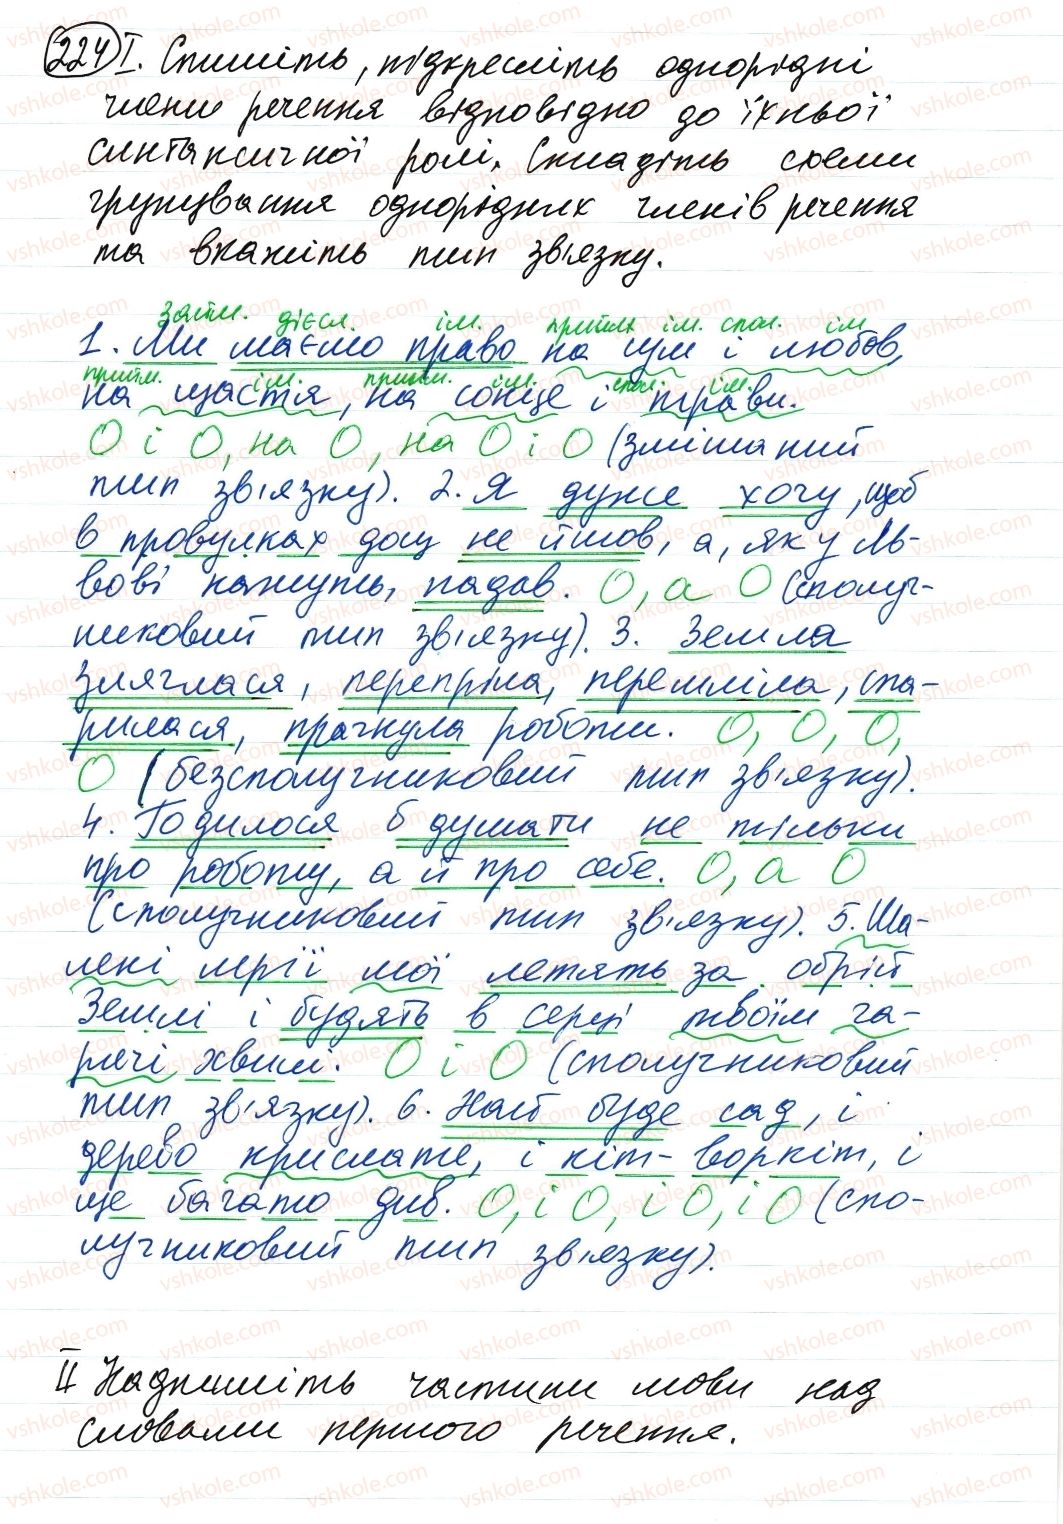 224 I. Спишіть, підкресліть однорідні
члени речення відповідно до їхньої
синтаксичної ролі. Складіть схеми
групування однорідних членів речення
та вкажіть тип зв'язку.
займ. дієсл. ім. прийм. ім. спол. ім.
1. Ми маємо право на сум і любов,
прийм. ім. прийм. ім. спол. ім.
на щастя, на сонце і трави.
О і О, на О, на О і О (змішаний
тип зв'язку). 2. Я дуже хочу, щоб
в провулках дощ не йшов, а, як у Ль-
вові кажуть, падав. О, а О (сполуч-
никовий тип зв'язку). 3. Земля
зляглася, перепріла, перемліла, спа-
рилася, прагнула роботи. О, О, О,
О (безсполучниковий тип зв'язку).
4. Годилося б думати не тільки
про роботу, а й про себе. О, а О
(сполучниковий тип зв'язку). 5. Ша-
лені мрії мої летять за обрій
Землі і будять в серці твоїм га-
рячі хвилі. О і О (сполучниковий
тип зв'язку). 6. Наш буде сад, і
дерево крислате, і кіт-воркіт, і
ще багато див. О, і О, і О, і О (спо-
лучниковий тип зв'язку).
II Надпишіть частини мови над
словами першого речення.